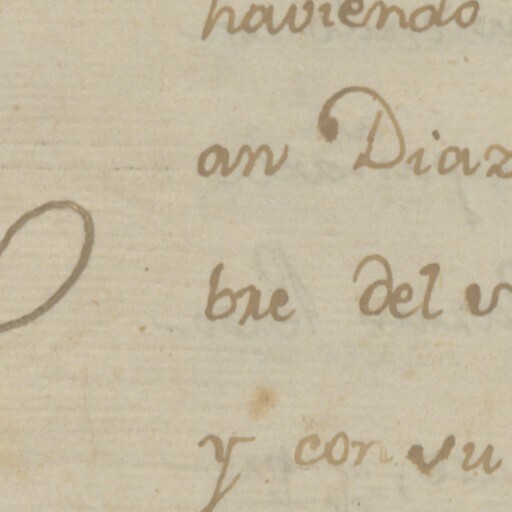 haviendo
an Diaz
bre del v
y con vu